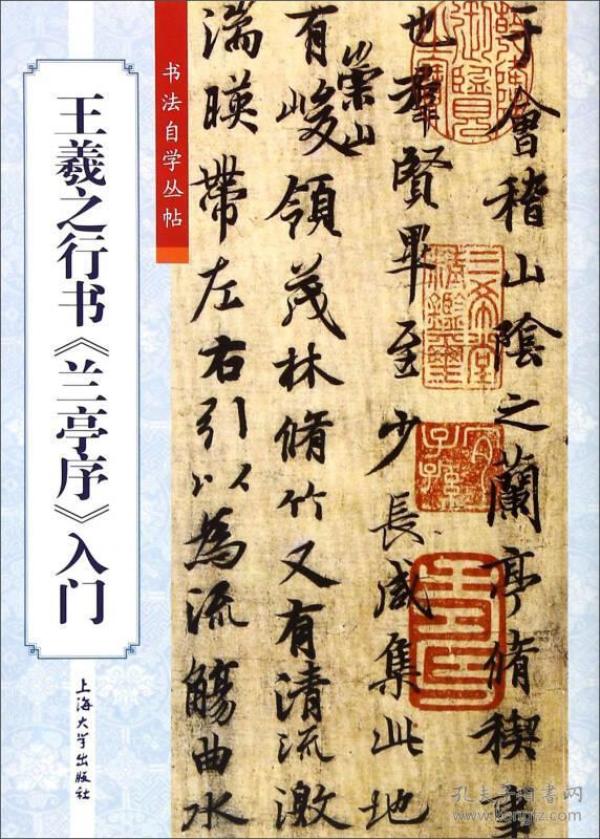 书法自学丛帖
王羲之行书《兰亭序》入门
上海大学出版社
于會稽山陰之蘭亭脩稧事
也群賢畢至少長咸集此地
有崇山峻領茂林脩竹又有清流激
湍暎帶左右引以為流觴曲水
三希堂精鑑璽
宜子孫
孔夫子旧书网
www.kongfz.com